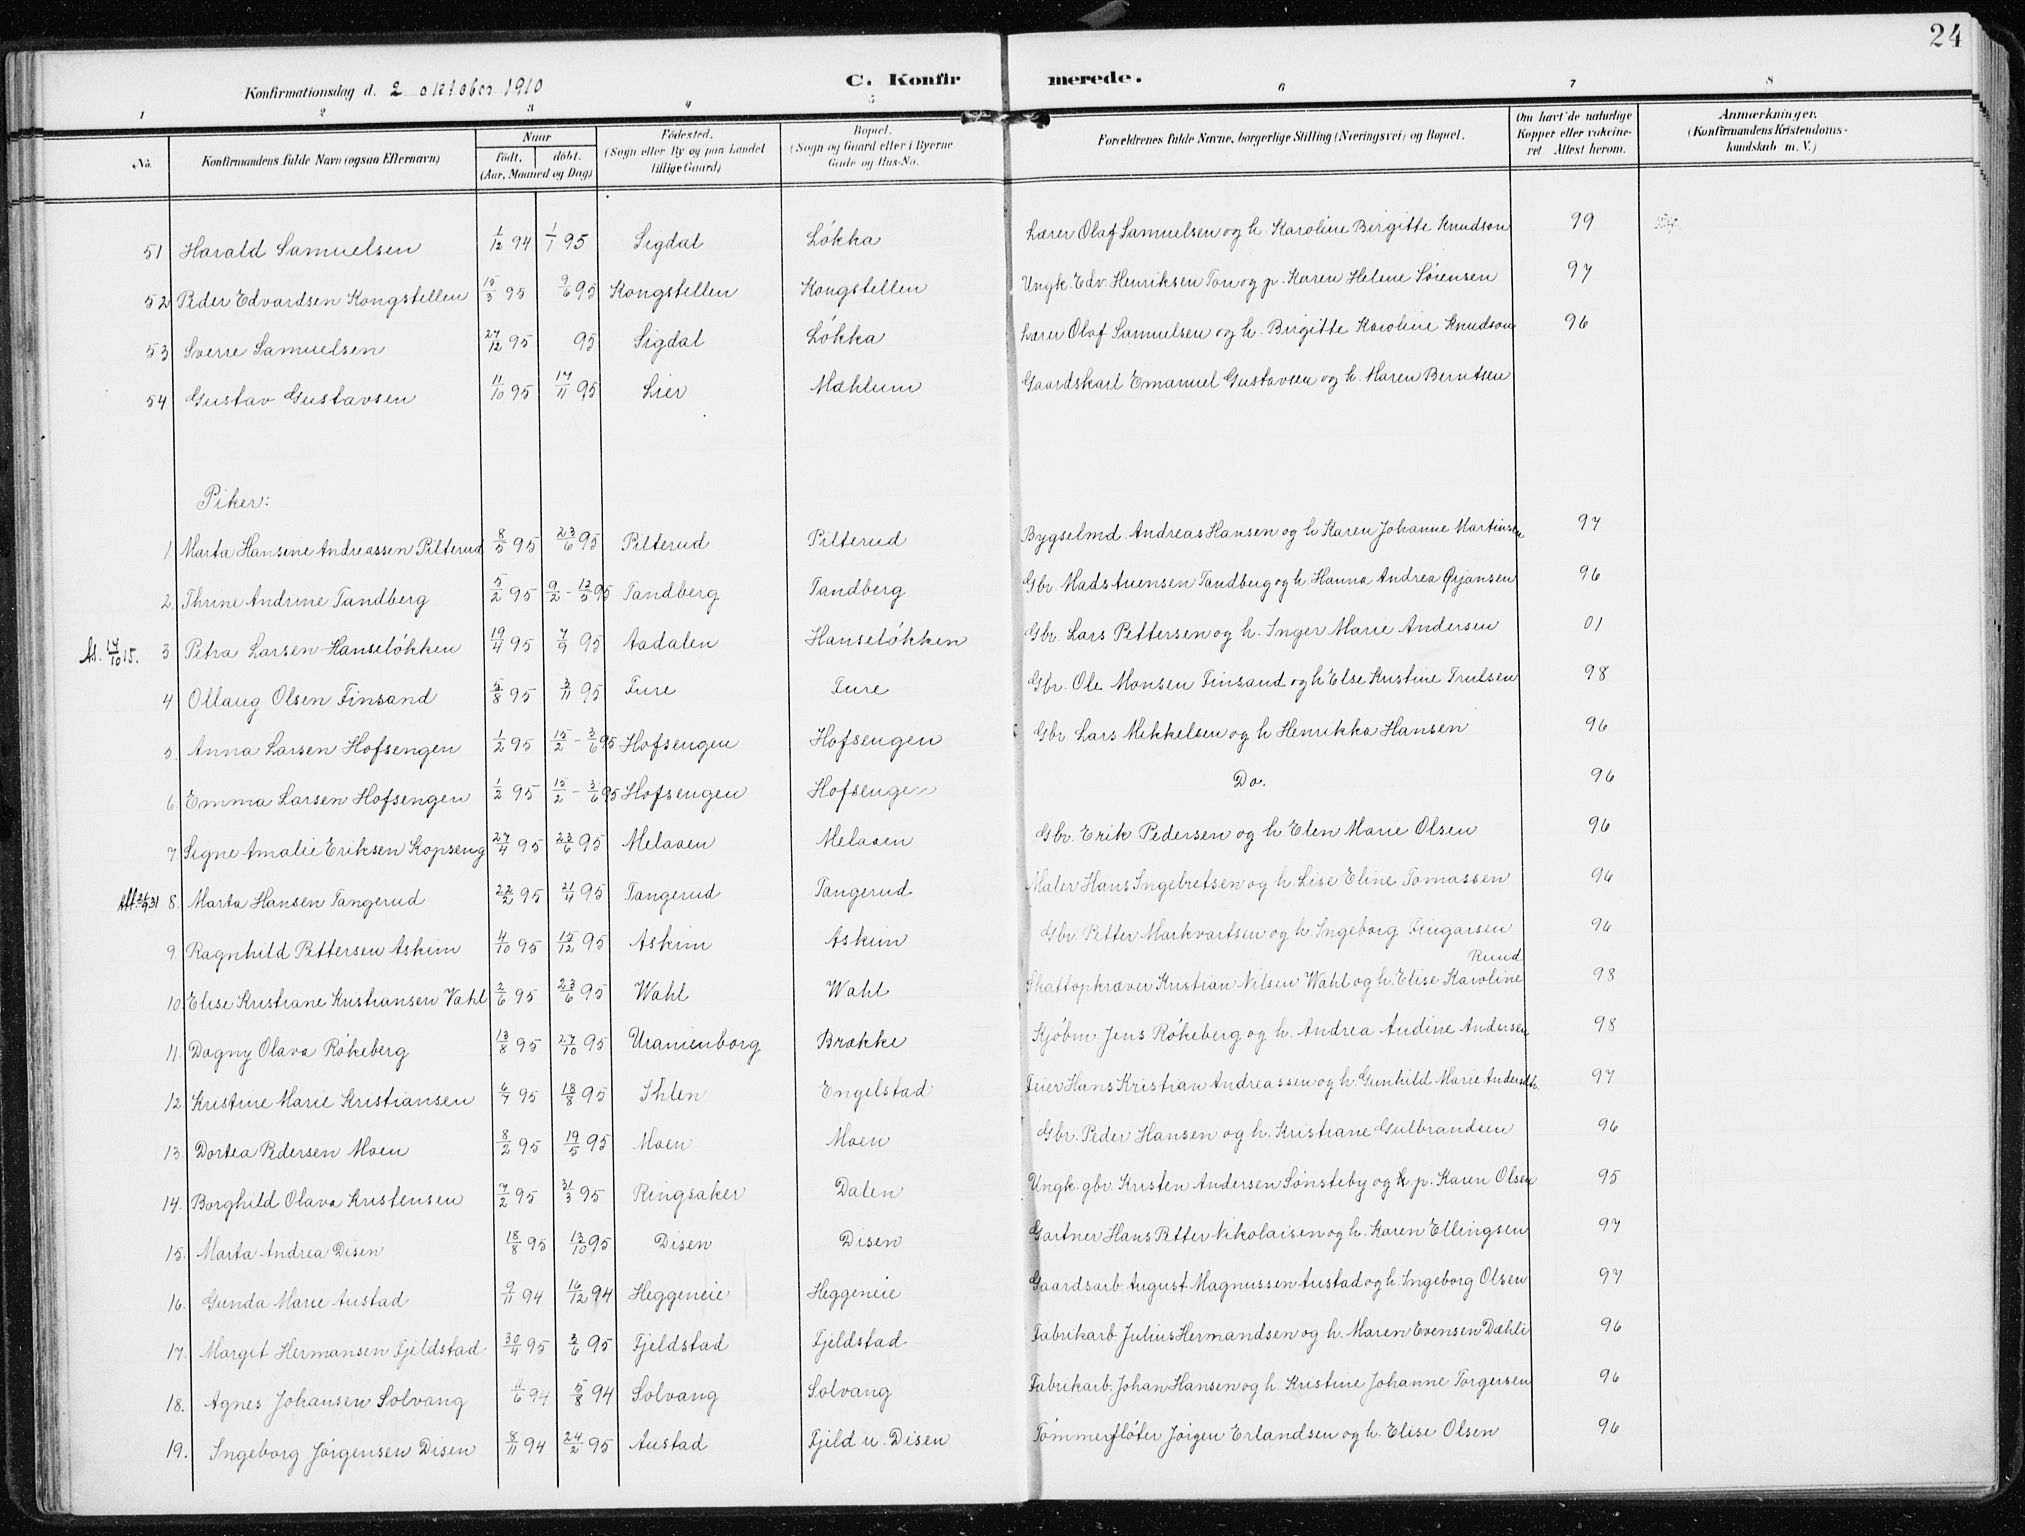 24
Konfirmationsdag d. 2 oktober 1910
C. Konfirmerede.
1 2 3 4 5 6 7 8
No. Konfirmandens fulde Navn (ogsaa Efternavn) Naar født. døbt. (Aar, Maaned og Dag) Fødested. (Sogn eller By og paa Landet tillige Gaard) Bopæl. (Sogn og Gaard eller i Byerne Gade og Hus-No. Forældrenes fulde Navne, borgerlige Stilling (Næringsvei) og Bopæl. Om havt de naturlige Kopper eller vakcineret Attest herom. Anmærkninger. (Konfirmandens Kristendomskundskab m. V.)
51 Harald Samuelsen 1/12 94 1/1 95 Sigdal Løkka Lærer Olaf Samuelsen og h. Karoline Birgitte Knudson 99
52 Peder Edvardsen Kongstellen 15/3 95 9/6 95 Kongstellen Kongstellen Ungk. Edv. Henriksen Ton og p. Karen Helene Sørensen 97
53 Sverre Samuelsen 27/12 95 95 Sigdal Løkka Lærer Olaf Samuelsen og h. Birgitte Karoline Knudson 96
54 Gustav Gustavsen 11/10 95 17/11 95 Lier Mæhlum Gaardskarl Emanuel Gustavsen og h. Maren Berntsen
Piker:
1. Marta Hansine Andreassen Pilterud 8/5 95 23/6 95 Pilterud Pilterud Bygselmd. Andreas Hansen og h Karen Johanne Martinsen 97
2. Thrine Andrine Tandberg 5/2 95 9/2 - 12/5 95 Tandberg Tandberg Gbr. Mads Auensen Tandberg og h. Hanna Andrea Ørjansen 96
At. 17/10 15. 3 Petra Larsen Hanseløkken 19/4 95 7/9 95 Aadalen Hanseløkken Gbr. Lars Pettersen og h. Inger Marie Andersen 01
4 Ollaug Olsen Finsand 5/8 95 3/11 95 Ture Ture Gbr. Ole Monsen Finsand og h Else Kristine Trulsen 98
5. Anna Larsen Hofsengen 1/2 95 15/2 - 3/6 95 Hofsengen Hofsengen Gbr Lars Mikkelsen og h Henrikka Hansen 96
6. Emma Larsen Hofsengen 1/2 95 15/2 - 3/6 95 Hofsengen Hofsengen Do. 96
7 Signe Amalie Eriksen Kopseng 27/4 95 23/6 95 Melaaen Melaaen Gbr. Erik Pedersen og h. Elen Marie Olsen 96
8. Marta Hansen Tangerud 22/2 95 21/4 95 Tangerud Tangerud Maler Hans Ingebretsen og h. Lise Eline Tomassen 96
9. Ragnhild Pettersen Askim 4/10 95 15/12 95 Askim Askim Gbr. Petter Markvartsen og h. Ingeborg Fingarsen 96
Ruud
10. Elise Kristiane Kristiansen Vahl 2/6 95 23/6 95 Wahl Wahl Skattopkræver Kristian Nilsen Wahl og h. Elise Karoline 98
11. Dagny Olava Røkeberg 13/8 95 27/10 95 Uranienborg Brække Kjøbm Jens Røkeberg og h. Andrea Andine Andersen 98
12. Kristine Marie Kristiansen 6/7 95 18/8 95 Ihlen Engelstad Feier Hans Kristian Andreassen og h. Gunhild Marie Andersdtr. 97
13. Dortea Pedersen Moen 8/2 95 19/5 95 Moen Moen Gbr. Peder Hansen og h. Kristiane Gulbrandsen 96
14. Borghild Olava Kristensen 7/2 95 31/3 95 Ringsaker Dalen Ungk. gbr. Kristen Andersen Sønsteby og p. Karen Olsen 95
15. Marta Andrea Disen 18/8 95 13/10 95 Disen Disen Gartner Hans Petter Nikolaisen og h. Karen Ellingsen 97
16. Gunda Marie Austad 9/11 94 16/12 94 Heggeneie Heggeneie Gaardsarb. August Magnussen Austad og h. Ingeborg Olsen 97
17. Margit Hermansen Fjeldstad 30/4 95 3/6 95 Fjeldstad Fjeldstad Fabrikarb. Julius Hermandsen og h. Maren Evensen Dæhli 96
18. Agnes Johansen Solvang 1/6 94 5/8 94 Solvang Solvang Fabrikarb. Johan Hansen og h. Kristine Johanne Torgersen 96
19. Ingeborg Jørgensen Disen 8/11 94 24/2 95 Austad Fjeld u. Disen Tømmerfløter Jørgen Erlandsen og h. Elise Olsen 96